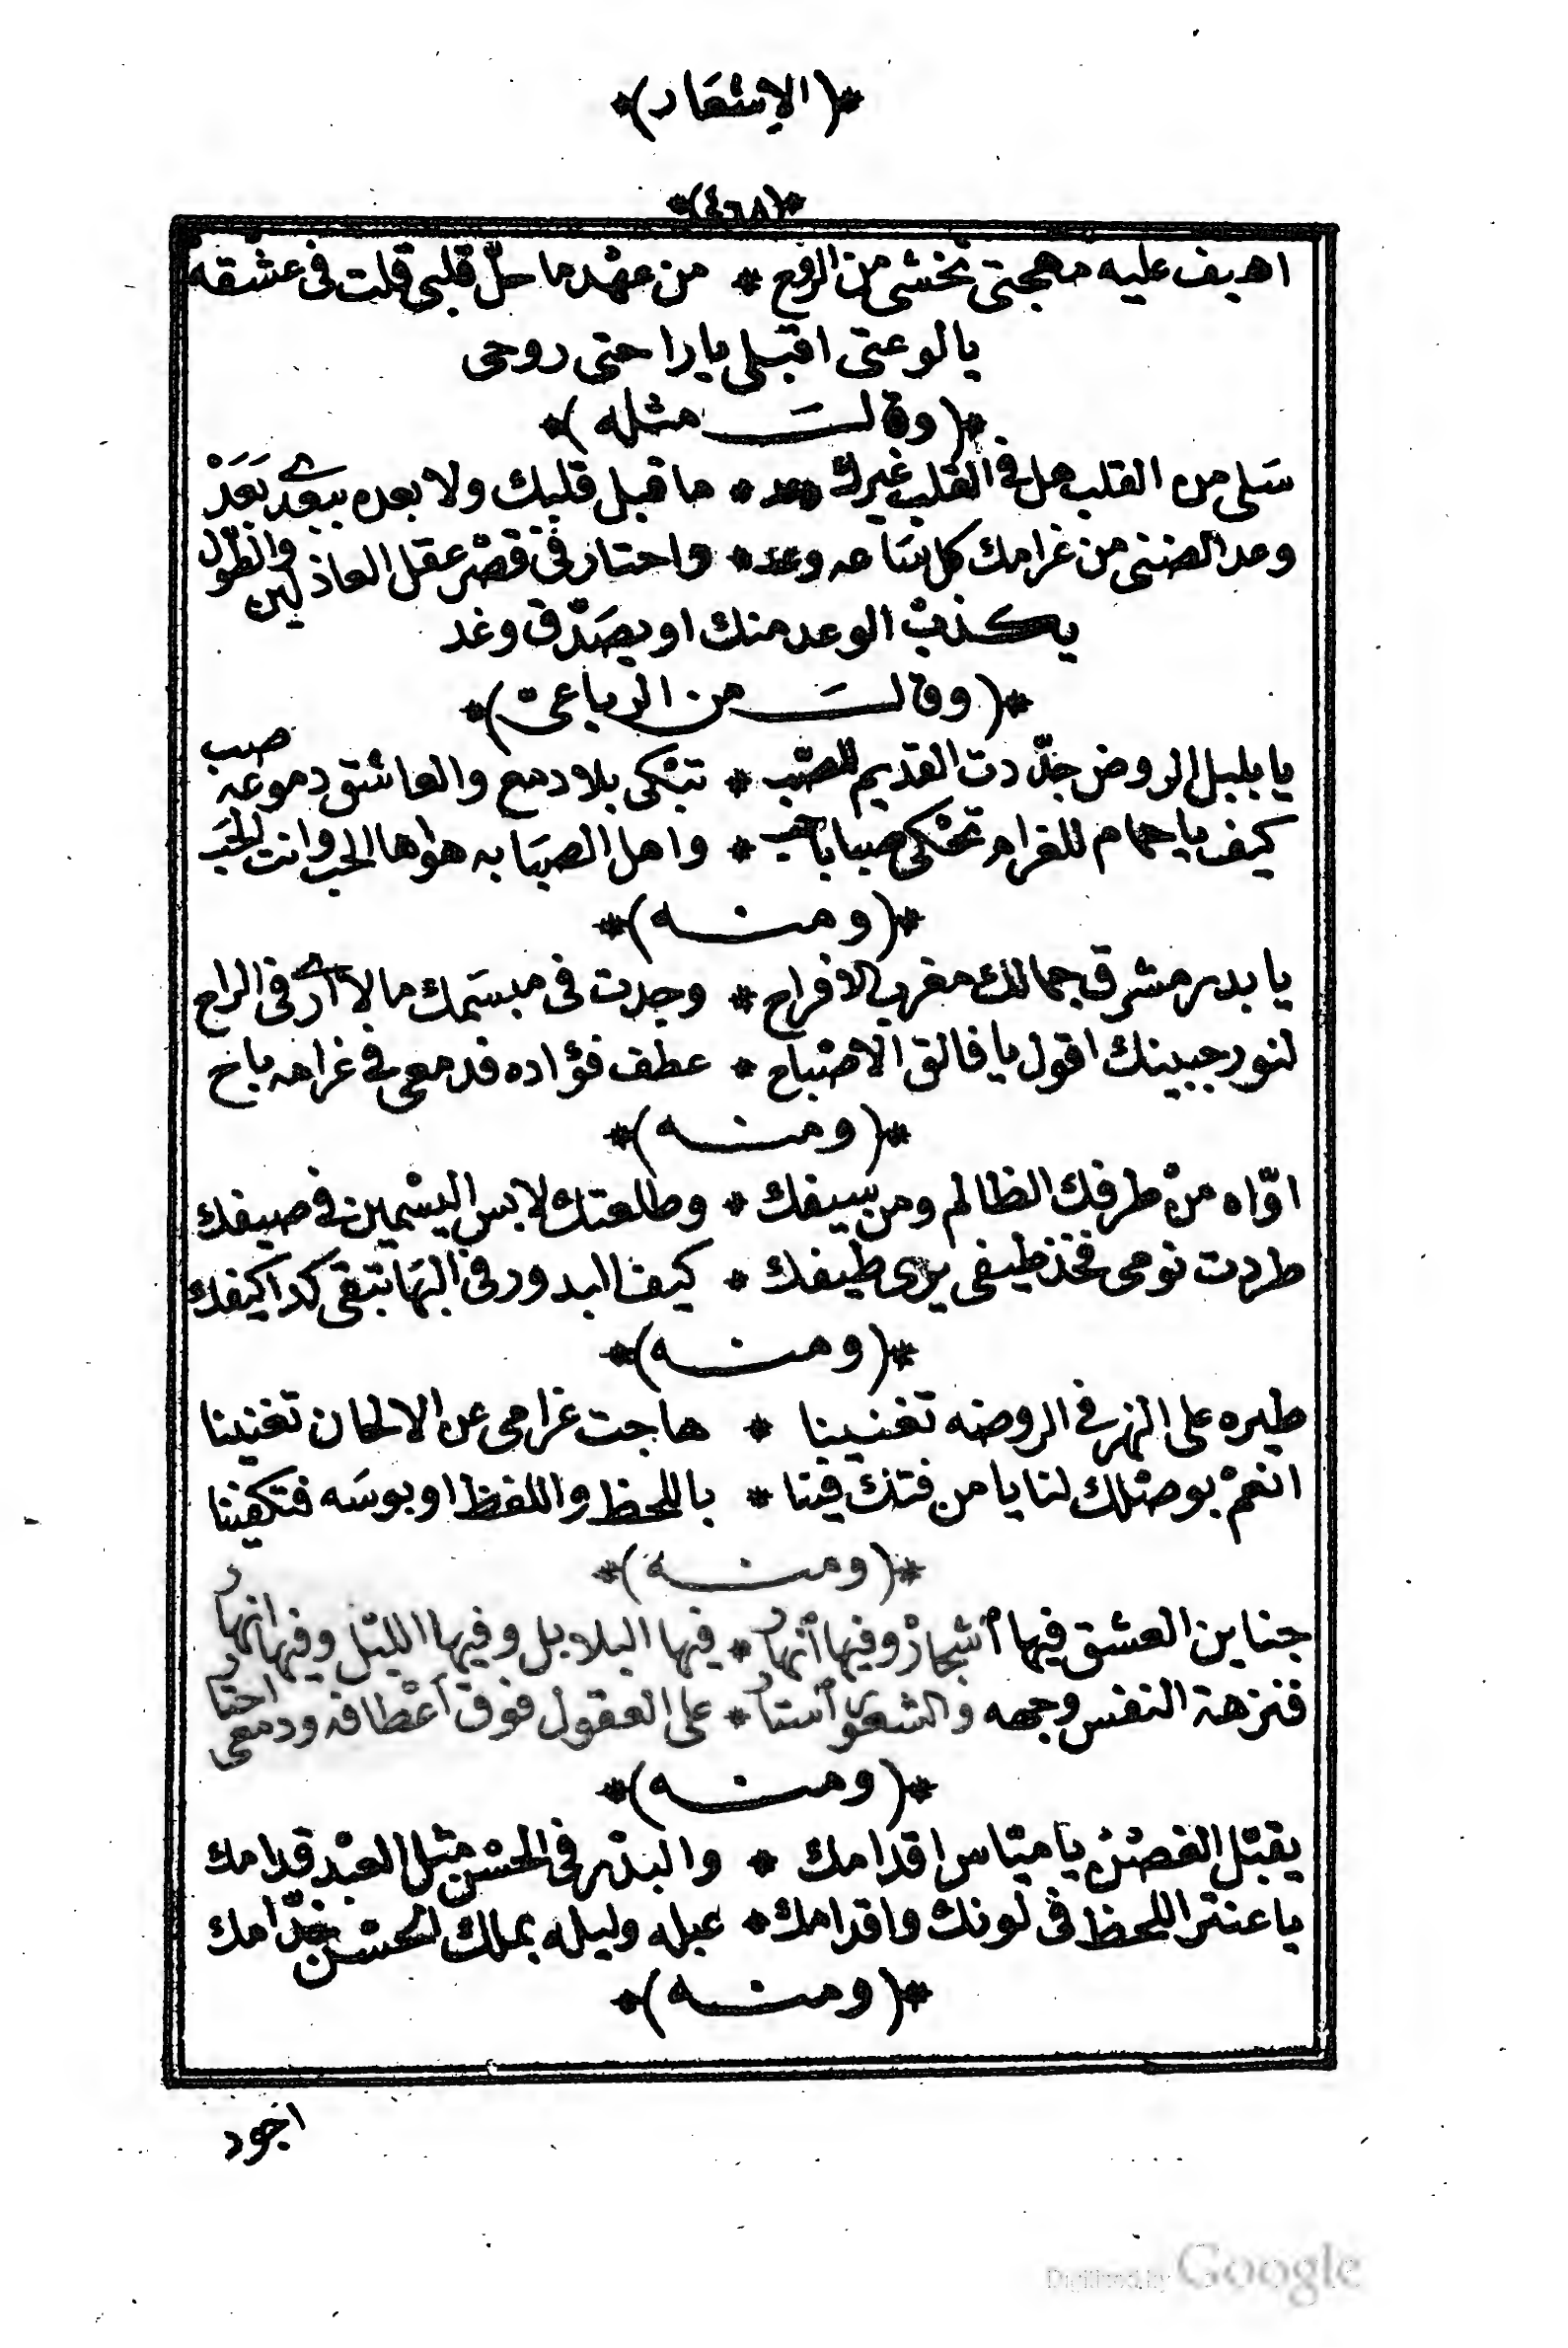 *(الإشعار)*
*(٤٦٨)*
اهيف عليه مهجتى تخشى من الروح * من عهْد ما حلّ قلبى قلت فى عشقه
يا لوعتى اقبلى يا راحتى روحى
*(وقالَت مثله)*
سَلى من القلب هل فى القلب غيرك * ما قبل قلبك ولا بعده يبعدى بَعَدْ
وعد الضنى من غرامك كل ساعه وعد * واحتار فى قصْر عقل العاذلين والطّول
يكذبْ الوعد منك او يصَدّق وغد
*(وقالَت من الرباعى)*
يا بلبل الروض جدّدت القديم للصّب * تبْكى بلا دمع والعاشق دموعه صب
كيف يا حمام للغرام تحْكى صبابا * واهل الصبَابه هواها الحب وانت الحَب
*(ومنه)*
يا بدر مشرق جمالك مغرب الافراح * وجدت فى مبسَمك ما لا أرى فى الراح
لنور جبينك اقول يا فالق الاصْباح * عطف فؤاده فدمعى فى غرامه باح
*(ومنه)*
اوّاه منْ طرفك الظالم ومن سيفك * وطلعتك لابس اليسْمين فى صيفك
طردت نومى فخذ طيفى يرى طيفك * كيف البدور فى البهَا تبقى كدا كيفك
*(ومنه)*
طيره على النهر فى الروضه تغنينا * هاجت غرامى عن الالحان تغنينا
انعمْ بوصْلك لنا يا من فتك فينا * باللحظ واللفظ او بوسَه فتكفينا
*(ومنه)*
جناين العشق فيها أشجارْ وفيها أنهار * فيها البلابل وفيها الليل وفيها انهار
فنزهة النفس وجهه والشعور أستار * على العقول فوق أعْطافه ودمعى احتار
*(ومنه)*
يقبّل الغصْن يا ميّاس اقدامك * والبدْر فى الحسْن مثل العبْد قدامك
يا عنتر اللحظ فى لونك واقدامك * عبله وليله بملك الحسْن خدّامك
*(ومنه)*
اجود
Digitized by Google